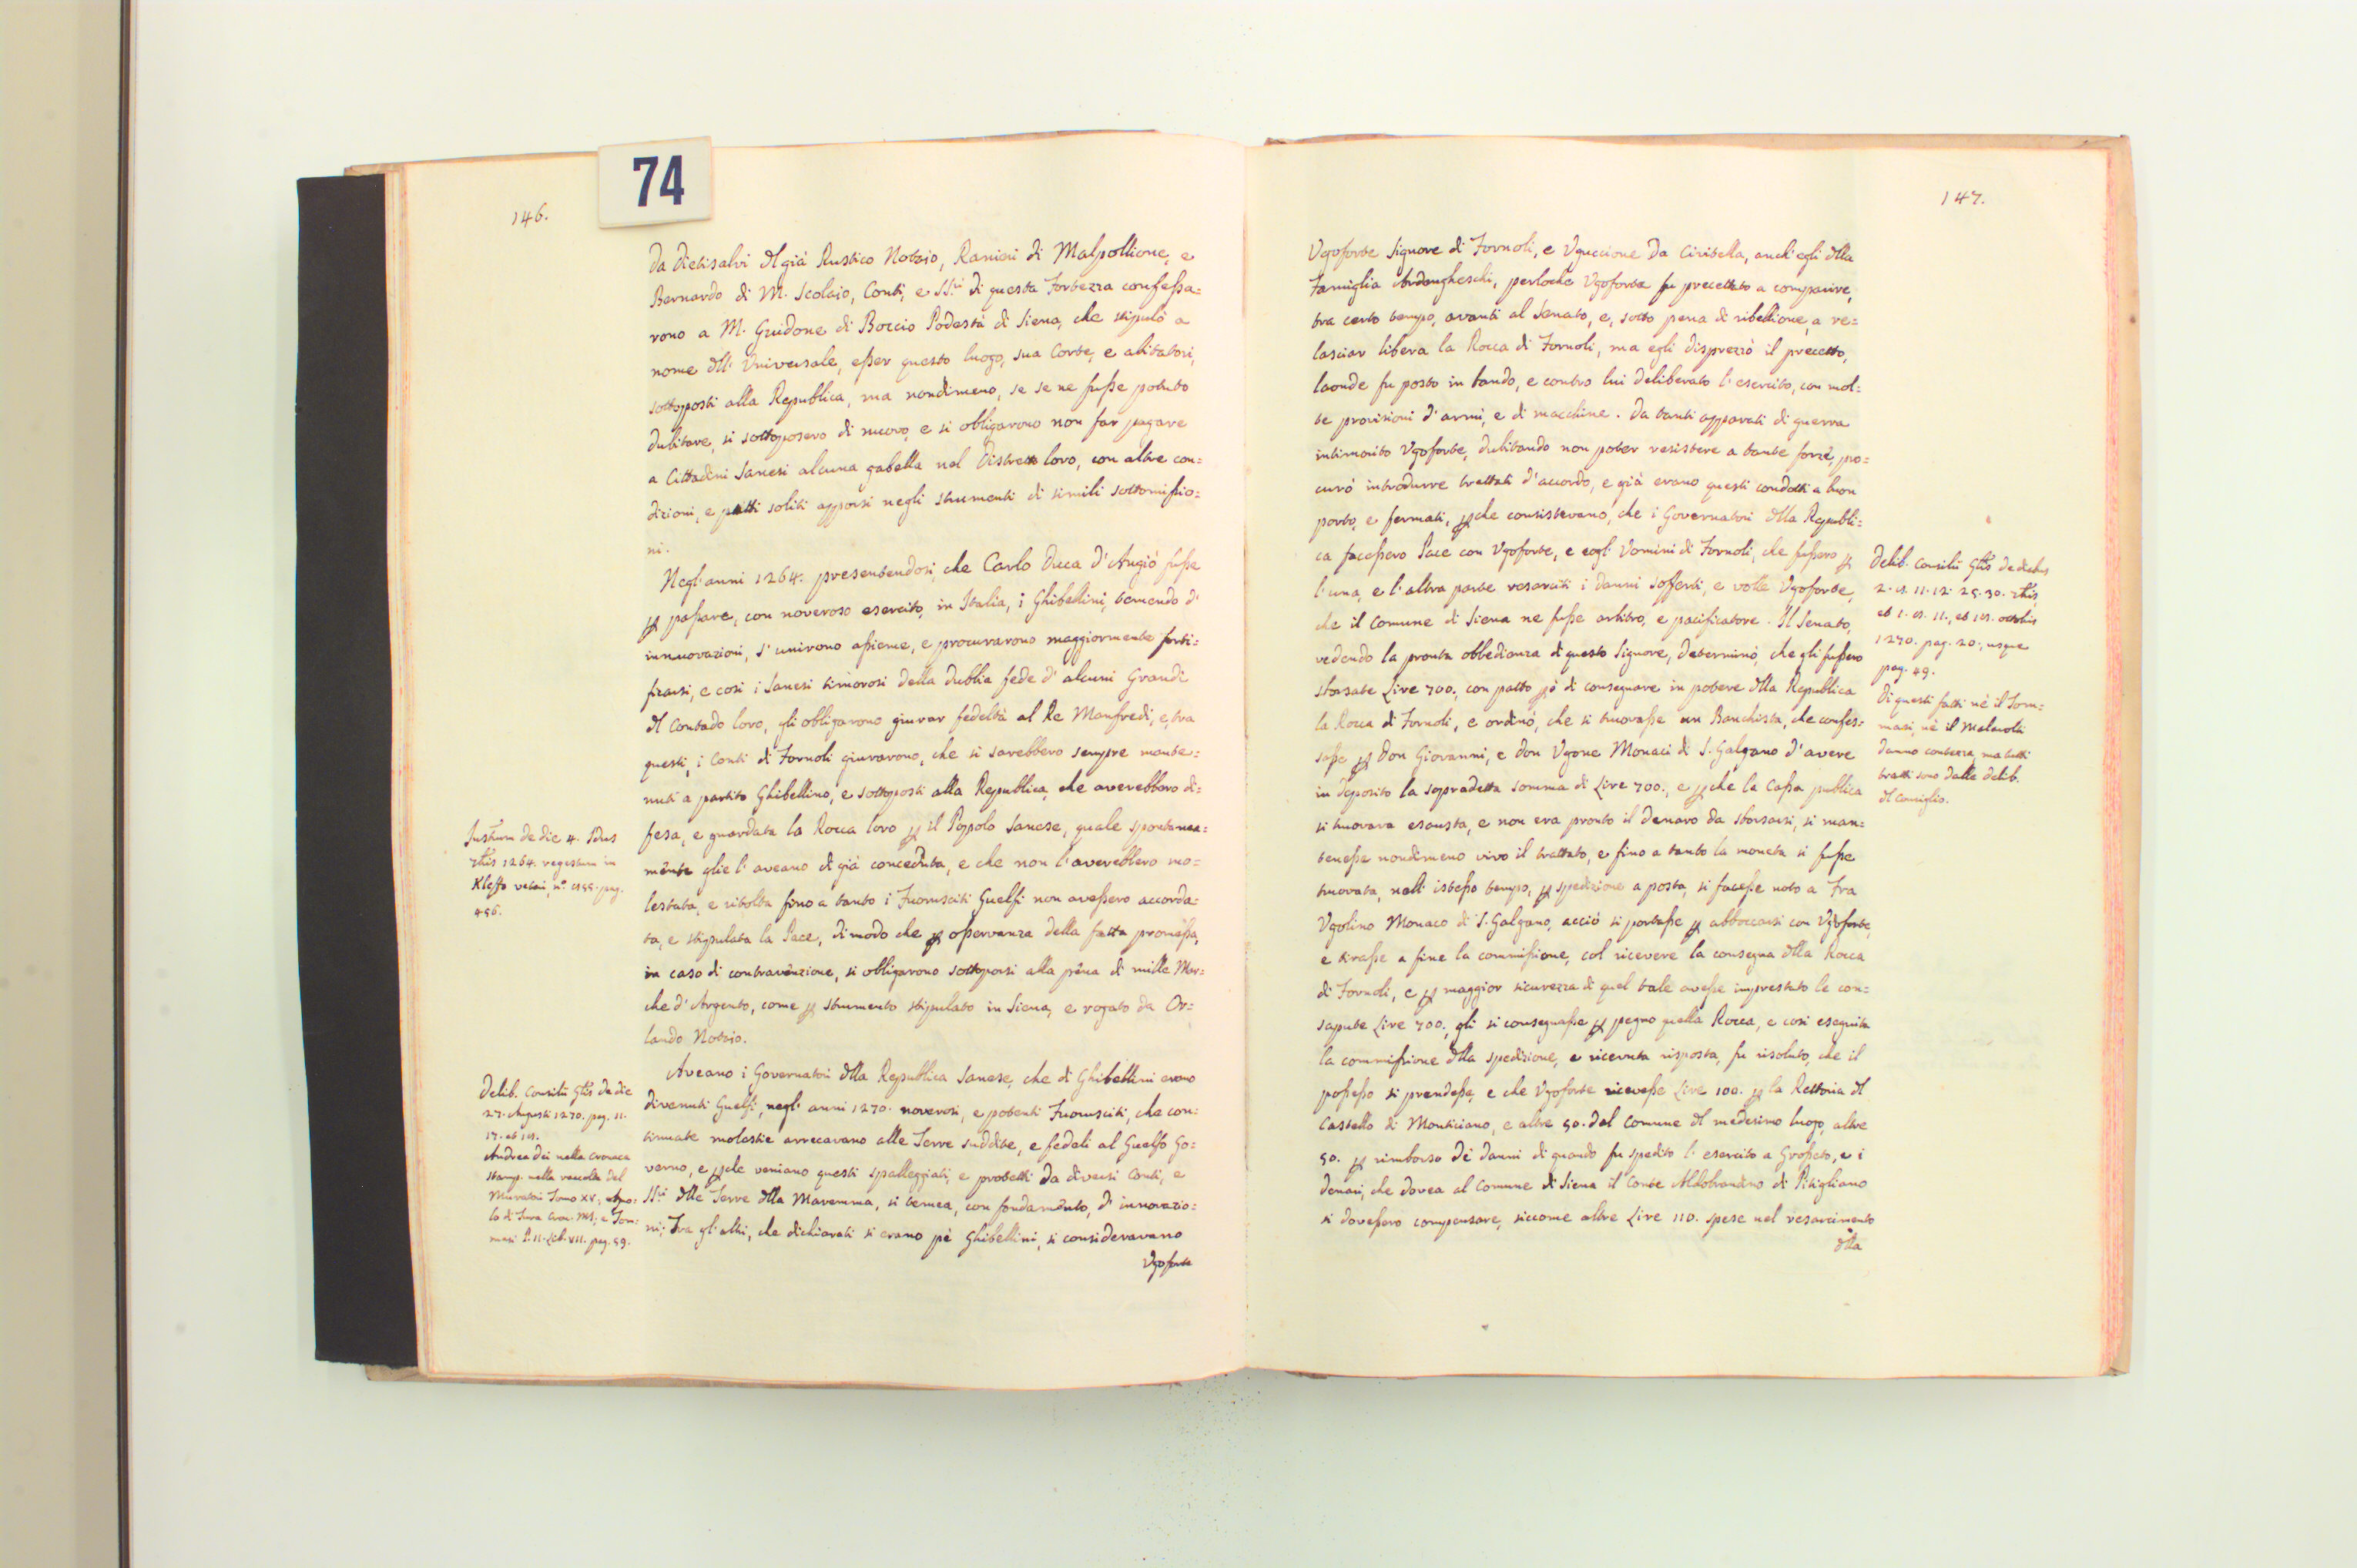 74
146.
da Dietisalvi dl già Rustico Notaio, Ranieri di Malpollione, e
Bernardo di M. Scolaio, Conti, e SS.ri di questa Fortezza confessa=
rono a M. Guidone di Boccio Podestà di Siena, che stipulò a
nome dll' Universale, esser questo luogo, sua Corte, e abitatori,
sottoposti alla Republica, ma nondimeno, se se ne fusse potuto
dubitare, si sottoposero di nuovo, e si obligarono non far pagare
a Cittadini Sanesi alcuna gabella nel Distretto loro, con altre con=
dizioni, e patti soliti apporsi negli strumenti di simili sottomissio=
ni.
Negl' anni 1264. presentendosi, che Carlo Duca d' Angiò fusse
p passare, con noveroso esercito, in Italia, i Ghibellini, temendo d'
innuovazioni, s' unirono assieme, e procurarono maggiormente forti=
ficarsi, e così i Sanesi timorosi della dubbia fede d' alcuni Grandi
dl Contado loro, gli obligarono giurar fedeltà al Re Manfredi, e, tra
questi, i Conti di Fornoli giurarono, che si sarebbero sempre mante=
nuti a partito Ghibellino, e sottoposti alla Republica, che averebbero di=
fesa, e guardata la Rocca loro p il Popolo Sanese, quale spontanea=
mente glie l' aveano di già conceduta, e che non l' averebbero mo=
lestata, e ritolta fino a tanto i Fuorusciti Guelfi non avessero accorda=
ta, e stipulata la Pace, di modo che p osservanza della fatta promessa,
in caso di contravenzione, si obligarono sottoporsi alla pena di mille Mar=
che d' Argento, come p strumento stipulato in Siena, e rogato da Or=
lando Notaio.
Aveano i Governatori dlla Republica Sanese, che di Ghibellini erano
divenuti Guelfi, negl' anni 1270. noverosi, e potenti Fuorusciti, che con=
tinuate molestie arrecavano alle Terre suddite, e fedeli al Guelfo Go=
verno, e pche veniano questi spalleggiati, e protetti da diversi Conti, e
SS.ri dlle Terre dlla Maremma, si temea, con fondamento, d' innovazio=
ni; Fra gl' altri, che dichiarati si erano pè Ghibellini, si consideravano
Ugoforte
Instrum de die 4. Idus
1264. registum in
Kleffo veteri, n.o pag.
456.
Delib. Consilii Glis de die
27. Augusti 1270. pag. 11.
17. et
Andrea Dei nella Cronaca
stamp. nella raccolta del
Muratori Tomo XV,
lo di Tura Cron. MS; e Tom=
masi P. II. Lib. VII. pag. 59.
147.
Ugoforte Signore di Fornoli, e Uguccione da Civitella, anch' egli dlla
Famiglia Ardengheschi, perloche Ugoforte fu precettato a comparire,
tra certo tempo, avanti al Senato, e, sotto pena di ribellione, a re=
lasciar libera la Rocca di Fornoli, ma egli disprezzò il precetto,
laonde fu posto in bando, e contro lui deliberato l' esercito, con mol=
te provisioni d' armi, e di macchine. Da tanti apparati di guerra
intimorito Ugoforte, dubitando non poter resistere a tante forze, pro=
curò introdurre trattati d' accordo, e già erano questi condotti a buon
porto, e fermati, pche consistevano, che i Governatori dlla Republi=
ca facessero Pace con Ugoforte, e cogl' Uomini di Fornoli, che fussero p
l' una, e l' altra parte resarciti i danni sofferti, e volle Ugoforte,
che il Comune di Siena ne fusse arbitro, e pacificatore. Il Senato,
vedendo la pronta obbedienza di questo Signore, determinò, che gli fussero
sborsate Lire 700., con patto pò di consegnare in potere dlla Republica
la Rocca di Fornoli, e ordinò, che si truovasse un Banchista, che confes=
sasse p Don Giovanni, e Don Ugone Monaci di S. Galgano d' avere
in deposito la sopradetta somma di Lire 700., e pche la Cassa publica
si truovava esausta, e non era pronto il denaro da sborsarsi, si man=
tenesse nondimeno vivo il trattato, e fino a tanto la moneta si fusse
truovata, nell' istesso tempo, p spedizione a posta, si facesse noto a Fra
Ugolino Monaco di S. Galgano, acciò si portasse p abboccarsi con Ugoforte,
e tirasse a fine la commissione, col ricevere la consegna dlla Rocca
di Fornoli, e p maggior sicurezza di quel tale avesse imprestato le con=
sapute Lire 700., gli si consegnasse p pegno quella Rocca, e così eseguita
la commissione dlla spedizione, e ricevuta risposta, fu risoluto, che il
possesso si prendesse, e che Ugoforte ricevesse Lire 100. p la Rettoria dl
Castello di Monticiano, e altre 50. dal Comune dl medesimo luogo, altre
50. p rimborso dè danni di quando fu spedito l' esercito a Grosseto, e i
denari, che dovea al Comune di Siena il Conte Aldobrandino di Pitigliano
si dovessero compensare, siccome altre Lire 110. spese nel resarcimento
dlla
Delib. Consilii Glis de diebus
2. 11. 12. 25. 30.
et 1. 11., et octobris
1270. pag. 20., usque
pag. 49.
Di questi fatti nè il Tom=
masi, nè il Malavolti
danno contezza, ma tutti
tratti sono dalle delib.
dl Consiglio.